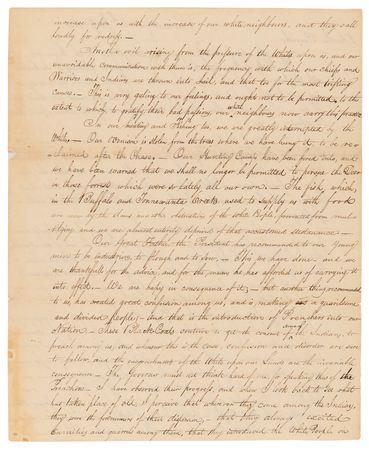 increase upon us with the increase of our white neighbours, and they call
loudly for redress. —
Another evil arising from the pressure of the Whites upon us, and our
unavoidable communication with them is, the frequency with which our chiefs and
Warriors and Indians are thrown into Jail, and that too for the most trifling
causes. This is very galling to our feelings, and ought not to be permitted to the
extent to which, to gratify their bad passions, our white neighbours now carry this practice
In our hunting and fishing too, we are greatly interrupted by the
Whites — Our Venison is stolen from the trees where we have hung it to be re
claimed after the chase. — Our Hunting Camps have been fired into, and
we have been warned that we shall no longer be permitted to pursue the Deer
in those forests which were so lately all our own. — The fish, which,
in the Buffalo and Tonnawanta Creeks used to supply us with food
are now by the dams and other obstructions of the White People, prevented from multi
plying, and we are almost entirely deprived of that accustomed sustenance —
Our Great Father the President has recommended to our Young
men to be industrious, to plough and to sow. — This we have done — and we
are thankfull for the advice, and for the means he has afforded us of carrying it
into effect. — We are happy in consequence of it — but another thing recommended
to us, has created great confusion among us, and is making us a quarrelsome
and divided people; — and that is the introduction of Preachers into our
Nation. — These Black Coats continue to get the consent of some of the Indians, to
preach among us, and whenever this is the case confusion and disorder are sure
to follow, and the encroachment of the Whites upon our Lands are the invariable
consequence — The Governor must not think hard of me for speaking thus of the
Preachers — I have observed their progress, and when I look back to see what
has taken place of old, I perceive that wherever they came among the Indians,
they were the forerunners of their dispersion; — that they always excited
Enmities and quarrels among them, that they introduced the White People on